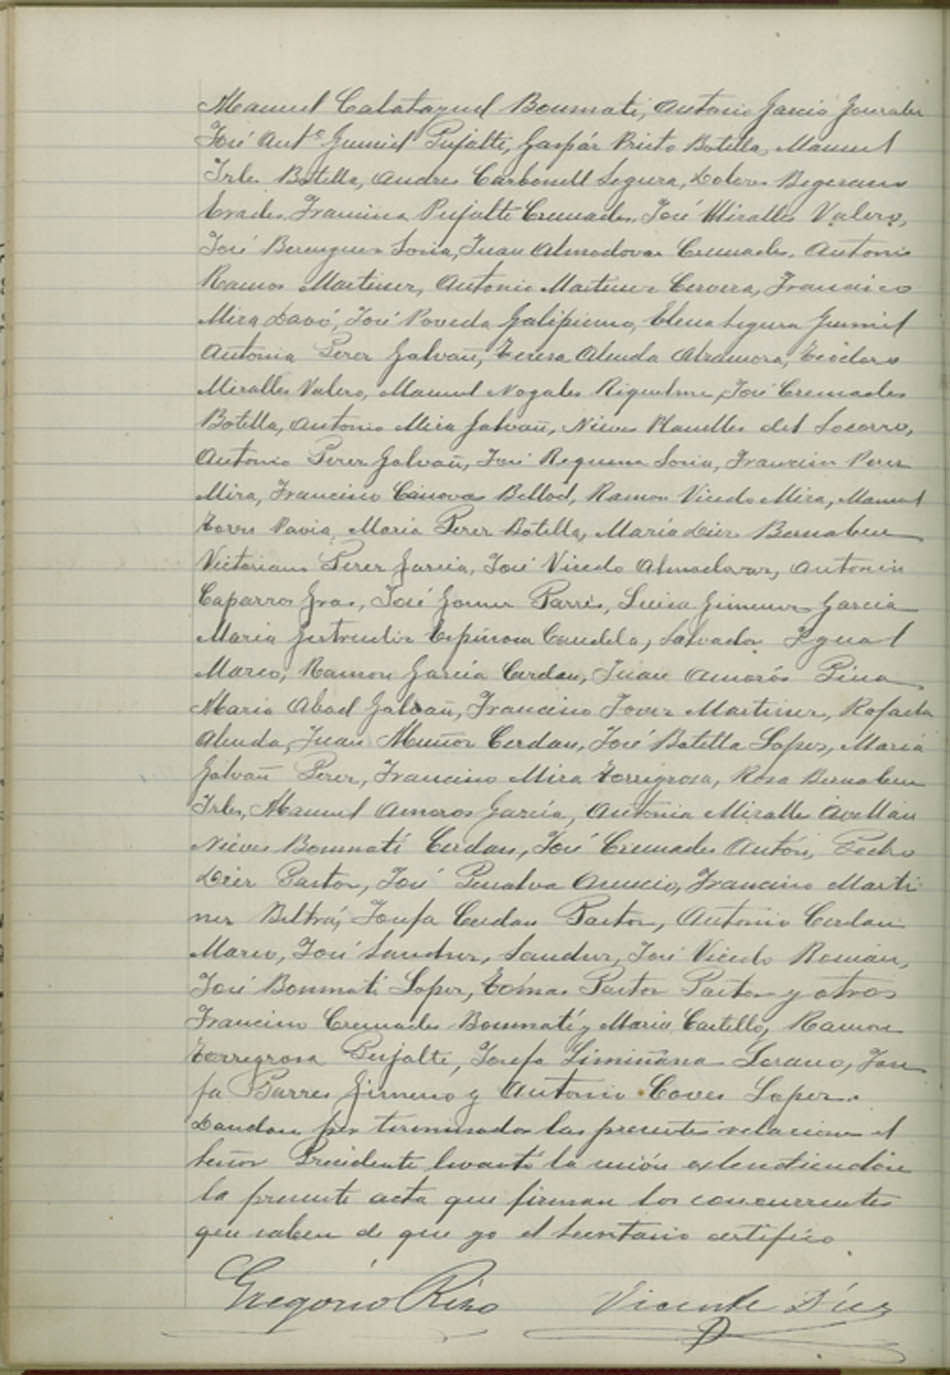 Manuel Calatayud Bonmati, Antonio Garcia Gonzalez
José Antº Gumiel Pujalte, Gaspár Prieto Botella, Manuel
Irles Botella, Andres Carbonell Segura, Dolores
Francisca Pujalte Cremades, José Miralles Valero,
José Berenguer Soria, Juan Almodovar Cremades, Antonio
Ramos Martinez, Antonio Martinez Cervera, Francisco
Mira Davó, José Poveda Galipienso, Elena Segura Gumiel
Antonia Perez Galvañ, Teresa Alenda Alzamora, Teodoro
Miralles Valero, Manuel Nogales Riquelme, José Cremades
Botella, Antonio Mira Galvañ, Nieves Planelles del Socorro,
Antonio Perez Galvañ, José Requena Soria, Francisco Perez
Mira, Francisco Cánovas Bellod, Ramon Vicedo Mira, Manuel
Torres Pavia, Maria Perez Botella, María Diez Bernabeu
Victoriano Perez Garcia, José Vicedo Almodovar, Antonio
Caparros Gras, José Gomez Parres, Luisa Gimenez Garcia
Maria Gertrudis Espinosa Candela, Salvador Igual
Marco, Ramon García Cerdan, Juan Amorós Pina
Maria Abad Galvañ, Francisco Jover Martinez, Rafaela
Alenda, Juan Muñoz Cerdan, José Botella Lopez, Maria
Galvañ Perez, Francisco Mira Torregrosa, Rosa Bernabeu
Irles, Manuel Amoros García, Antonia Miralles Avellan
Nieves Bonmatí Cerdan, José Cremades Antón, Pedro
Diez Pastor, José Penalva Asencio, Francisco Marti
nez Beltrá, Josefa Cerdan Pastor, Antonio Cerdan
Marco, José Sanchez, Sanchez, José Vicedo Román,
José Bonmati Lopez, Tómas Pastor Pastor y otros
Francisco Cremades Bonmatí y Maria Castelló, Ramon
Torregrosa Pujalte, Josefa Limiñana Lozano, Jose
fa Parres Gimeno y Antonio Coves Lopez.
Dandose por terminadas las presentes relaciones el
Señor Presidente levantó la sesión extendiendose
la presente acta que firman los concurrentes
que saben de que yo el Secretario certifico.
Gregorio Rizo Vicente Díez